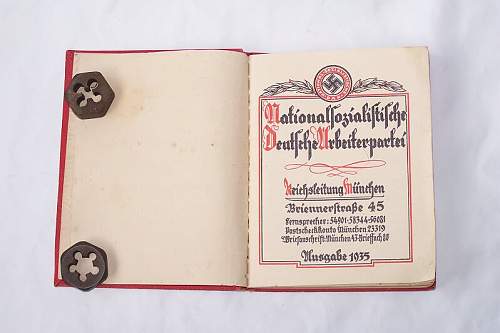 Nationalsozialistische
Deutsche Arbeiterpartei
Reichsleitung München
Briennerstraße 45
Fernsprecher: 54901·58344·56081
Postscheckkonto München 23319
Briefanschrift: München 43·Brieffach 80
Ausgabe 1935